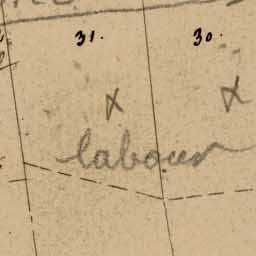 31. 30.
x x
labour